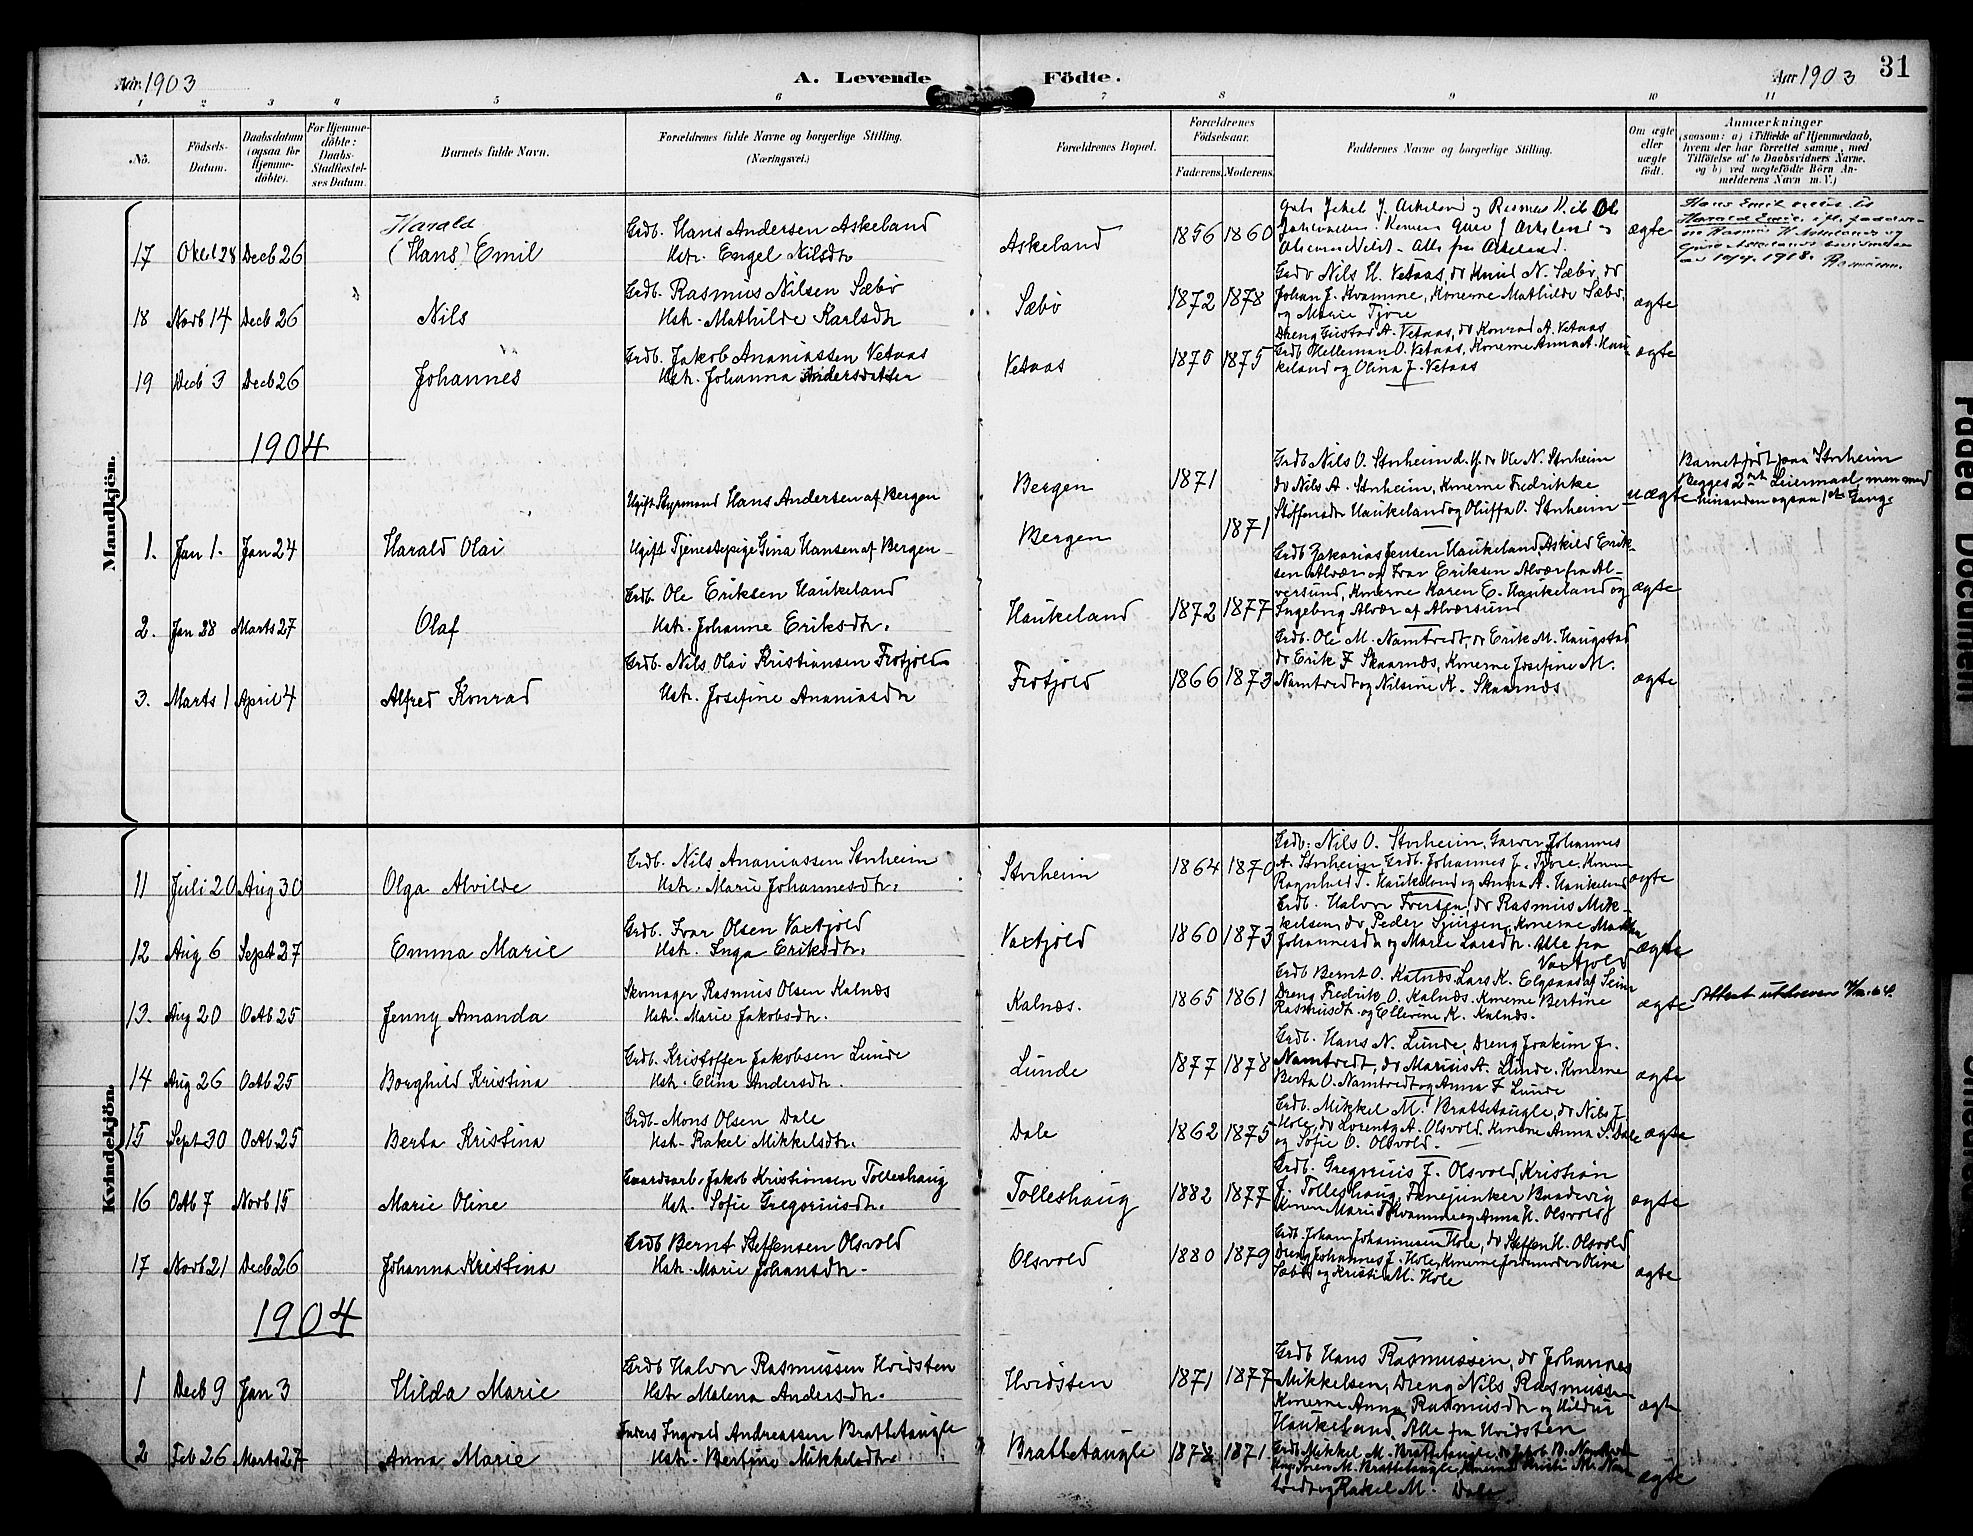 Aar 1903
A. Levende Födte.
Aar 1903
31
1 2 3 4 5 6 7 8 9 10 11
No.
Födsels-Datum.
Daabsdatum (ogsaa for Hjemme-döbte).
For Hjemme-döbte: Daabs-Stadfæstel-ses Datum.
Barnets fulde Navn.
Forældrenes fulde Navne og borgerlige Stilling. (Næringsvei.)
Forældrenes Bopæl.
Forældrenes Födselsaar.
Faderens. Moderens.
Faddernes Navne og borgerlige Stilling.
Om ægte eller uægte födt.
Anmærkninger
(saasom: a) i Tilfælde af Hjemmedaab, hvem der har forrettet samme, med Tilföielse af to Daabsvidners Navne, og b) ved uægtefödte Börn An-melderens Navn m. V.)
Mandkjön.
Harald
17 Oktb 28 Decb 26 (Hans) Emil
Grdb. Hans Andersen Askeland
Hstr. Engel Nilsdtr
Askeland 1856 1860
ægte
18 Novb 14 Decb 26 Nils
Grdb. Rasmus Nilsen Sæbö
Hstr. Mathilde Karlsdtr
Sæbö 1872 1878
Grdb Nils H. Vetaas, do Knud N. Sæbö, do
Johan J. Kvamme, Konerne Mathilde Sæbö,
og Marie Tjore
ægte
19 Decb 3 Decb 26 Johannes
Grdb. Jakob Ananiassen Vetaas
Hstr. Johanna Andersdatter
Vetaas 1875 1875
Dreng Gustav A. Vetaas, do Konrad A. Vetaas
Grdb Helleman O. Vetaas, Konerne Anna A. Hau-
keland og Olina J. Vetaas
ægte
1904
1. Jan 1. Jan 24 Harald Olai
Ugift Styrmand Hans Andersen af Bergen
Ugift Tjenestepige Gina Hansen af Bergen
Bergen 1871
Bergen 1871
Grdb Nils O. Storheim d. y. do Ole N. Storheim
do Nils A. Storheim, Konerne Fredrikke
Stoffersdtr Haukeland og Oluffa O. Storheim
uægte
Barnet födt paa Storheim
Begges 2det Leiermaal, men med
hinanden ogsaa 1ste Gang
2. Jan 28 Marts 27 Olaf
Grdb. Ole Eriksen Haukeland
Hstr. Johanne Eriksdtr.
Haukeland 1872 1877
Grdb Zakarias Jensen Haukeland, Askild Erik-
sen Alvær og Ivar Eriksen Alvær fra Al-
versund, Konerne Karen E. Haukeland og
Ingeborg Alvær af Alversund
ægte
3. Marts 1 April 4 Alfred Konrad
Grdb. Nils Olai Kristiansen Frotjold
Hstr. Josefine Ananiasdtr
Frotjold 1866 1873
Grdb. Ole M. Namtvedt, do Erik M. Haugstad
do Erik F. Skaarnæs, Konerne Josefine M.
Namtvedt og Nilsine K. Skaarnæs
ægte
Kvindekjön.
11 Juli 20 Aug 30 Olga Alvilde
Grdb. Nils Ananiassen Storheim
Hstr. Marie Johannesdtr.
Storheim 1864 1870
Grdb. Nils O. Storheim, Garver Johannes
A. Storheim, Grdb. Johannes J. Tjore. Konerne
Ragnhild T. Haukeland og Anna A. Haukeland
ægte
12 Aug 6 Sept 27 Emma Marie
Grdb. Ivar Olsen Vaxtjold
Hstr. Inga Eriksdtr.
Vaxtjold 1860 1873
Grdb. Halvor Iversen, do Rasmus Mik-
kelsen, do Peder Sjursen, Konerne
Johannesdtr og Marie Larsdtr. Alle fra
Vaxtjold
ægte
13. Aug 20 Oktb 25 Jenny Amanda
Skomager Rasmus Olsen Kalnæs
Hstr. Marie Jakobsdtr.
Kalnæs. 1865 1861
Grdb Bernt O. Kalnæs, Lars K. Elgsaas af Seim
Dreng Fredrik O. Kalnæs. Konerne Bertine
Rasmusdtr. og Ellerine K. Kalnæs.
ægte
Attest utskreven
14 Aug 26 Oktb 25 Borghild Kristina
Grdb. Kristoffer Jakobsen Lunde
Hstr. Elina Andersdtr.
Lunde 1877 1878
Grdb. Hans N. Lunde, Dreng Joakim Jr.
Namtvedt, do Marius A. Lunde. Konerne
Berta O. Namtvedt og Anna F. Lunde
ægte
15 Sept 30 Oktb 25 Berta Kristina
Grdb. Mons Olsen Dale
Hstr. Rakel Mikkelsdtr.
Dale 1862 1875
Grdb. Mikkel M. Brattetaugle, do Nils J.
Hole, do Lorentz A. Olsvold. Konerne Anna S. Dale
og Sofie O. Olsvold.
ægte
16 Oktb 7 Novb 15 Marie Oline
Gaardsarb. Jakob Kristiansen Tolleshaug
Hstr. Sofie Gregoriusdtr.
Tolleshaug 1882 1877
Grdb. Gregorius J. Olsvold, Kristian
J. Tolleshaug, Fanejunker Bundevig
Konerne Marie Kvamme og Anna H. Olsvold
ægte
17 Novb 21 Decb 26 Johanna Kristina
Grdb Bernt Steffensen Olsvold
Hstr. Marie Johansdtr.
Olsvold 1880 1879
Grdb. Johan Johannesen Hole, do Steffen H. Olsvold
Dreng Johannes J. Hole, Konerne Jordemoder Oline
Sæbö og Kristi M. Hole
ægte
1904
1 Decb 9 Jan 3 Hilda Marie
Grdb Halvor Rasmussen Hvidsten
Hstr Malena Andersdtr.
Hvidsten 1871 1877
Grdb Hans Rasmussen, do Johannes
Mikkelsen, Dreng Nils Rasmussen
Konerne Anna Rasmusdtr og Hildur
Haukeland, Alle fra Hvidsten
ægte
2 Feb 26 Marts 27 Anna Marie
Inders Ingvald Andreassen Brattetaugle
Hstr. Bertine Mikkelsdtr.
Brattetaugle 1872 1871
Grdb. Mikkel M. Brattetaugle, do Jakob B. Namtvedt
Ung. Sören M. Brattetaugle, Konerne Kristi M. Nam-
tvedt og Rakel M. Dale
ægte